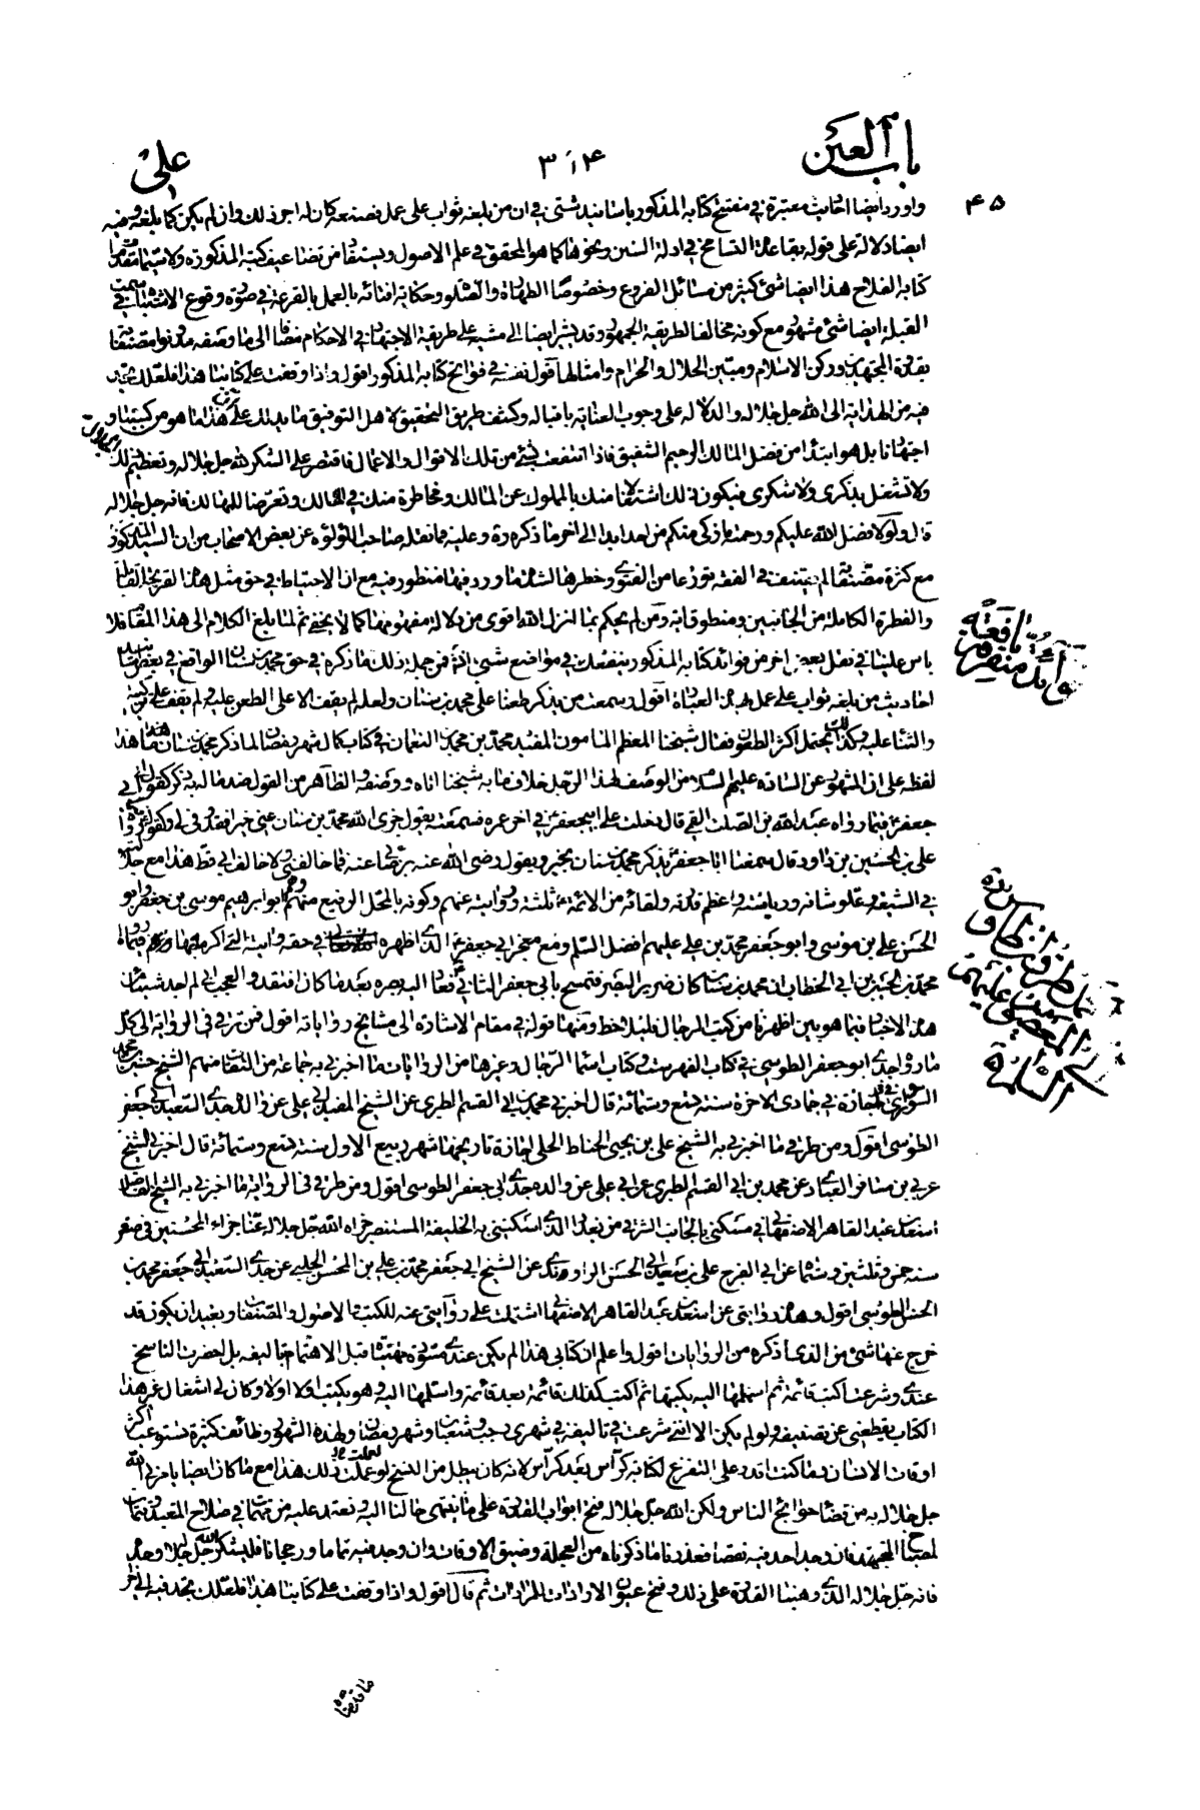 باب العين
٣١٤
علي
٤٥
واورد ايضا احاديث معتبرة في مفتتح كتابه المذكور باسانيد شتى في ان من بلغه ثواب على عمل فصنعه كان له اجر ذلك وان لم يكن كما بلغه وفيه
ايضا دلالة على قوله بقاعدة التسامح في ادلة السنن ونحوها كما هو المحقق في علم الاصول ويستفاد من تضاعيف كتبه المذكورة ولا سيما مقدمة
كتابه الفلاح هذا ايضا شئ كثير من مسائل الفروع وخصوصا الطهارة والصلوة وحكاية افتائه بالعمل بالقرعة في صورة وقوع الاشتباه في سمت
القبلة ايضا شئ مشهور مع كونه مخالفا لطريقة الجمهور وقد يشير ايضا الى مشيه على طريقة الاجتهاد في الاحكام مضافا الى ما وصفه
بقدوة المجتهدين وركن الاسلام ومبين الحلال والحرام وامثالها قول نفسه في فواتح كتابه المذكور اقول واذا وقفت على كتابنا هذا فلعلك تجد
فيه من الهداية الى الله جل جلاله والدلالة على وجوب العناية باقباله وكشف طريق التحقيق لاهل التوفيق ما يدلك على ان هذا ما هو من كسبنا و
اجتهادنا بل هو ابتداء من فضل المالك الرحيم الشفيق فاذا انتفعت بشئ من تلك الاقوال والاعمال فاقتصر على الشكر لله جل جلاله وتعظيم ذلك الجلال
ولا تشتغل بذكري ولا شكري فيكون ذلك اشتغالا منك بالمملوك عن المالك ومخاطرة منك في المسالك وتعرضا للمهالك فانه جل جلاله
قال ولولا فضل الله عليكم ورحمته ما زكى منكم من احد ابدا الى اخر ما ذكره ره وعليه فما نقله صاحب اللؤلؤه عن بعض الاصحاب من ان السيد المذكور
مع كثرة مصنفاته لم يصنف في الفقه تورعا من الفتوى وخطرها الشدة ما ورد فيها منظور فيه مع ان الاحتياط في حق مثل هذا القريحة القابلة
والفطرة الكاملة من الجانبين ومنطوق اية ومن لم يحكم بما انزل الله اقوى من دلالة مفهومها كما لا يخفى ثم لما بلغ الكلام الى هذا المقام فلا
باس علينا في نقل بعض اخر من فوائد كتابه المذكور ينفعك في مواضع شتى انشاء فمن جملة ذلك ما ذكره في حق محمد بن سنان الواقع في بعض اسانيد
احاديث من بلغه ثواب على عمل بهذه العبارة اقول وسمعت من يذكر طعنا على محمد بن سنان ولعله لم يقف الا على الطعن عليه ولم يقف على تزكيته
والثناء عليه وكذلك يحتمل اكثر الطعون فقال شيخنا المعظم المامون المفيد محمد بن محمد بن النعمان في كتاب كمال شهر رمضان لما ذكر محمد بن سنان ما هذا
لفظه على ان المشهور عن السادة عليهم السلام من الوصف لهذا الرجل خلاف ما به شيخنا اتاه ووصفه والظاهر من القول ضد ما له به ذكر كقول ابي
جعفر ع فيما رواه عبد الله بن الصلت القمي قال دخلت على ابي جعفر ع في اخر عمره فسمعته يقول جزى الله محمد بن سنان عني خيرا فقد وفى لي وكقوله ع فيما رواه
علي بن الحسين بن داود قال سمعنا ابا جعفر ع يذكر محمد بن سنان بخير ويقول رضي الله عنه برضائي عنه فما خالفني ولا خالف ابي قط هذا مع جلالته
في الشيعة وعلو شانه ورياسته وعظم قدره ولقائه من الائمة ع ثلثة وروايته عنهم وكونه بالمحل الرفيع منهم وهم ابو ابراهيم موسى بن جعفر وابو
الحسن علي بن موسى وابو جعفر محمد بن علي عليهم افضل السلم ومع معجز ابي جعفر ع الذي اظهره الله تعالى في حقه وايته التي اكرمه بها
محمد بن الحسين بن ابي الخطاب ان محمد بن سنان كان ضرير البصر فتمسح بابي جعفر الثاني ع فعاد اليه بصره بعد ما كان افتقده
هذه الاخبار فيما هو بين اظهرنا من كتب الرجال فليلاحظ ومنها قوله في مقام الاشارة الى مشايخ رواياته اقول فمن طرقي في الرواية الى كل
ما رواه جدي ابو جعفر الطوسي في كتاب الفهرست وكتاب اسماء الرجال وغيرها من الروايات ما اخبرني به جماعة من الثقات منهم الشيخ حسين بن محمد
السوراوي اجازة في جمادى الاخرة سنة تسع وستمائة قال اخبرني محمد بن ابي القسم الطبري عن الشيخ المفيد ابي علي عن والده جدي السعيد ابي جعفر
الطوسي اقول ومن طرقي ما اخبرني به الشيخ علي بن يحيى الحناط الحلي اجازة تاريخها شهر ربيع الاول سنة تسع وستمائة قال اخبرني الشيخ
عربي بن مسافر العبادي عن محمد بن ابي القسم الطبري عن ابي علي عن والده جدي ابي جعفر الطوسي اقول ومن طرقي في الرواية ما اخبرني به الشيخ الفاضل
اسعد بن عبد القاهر الاصفهاني في مسكني بالجانب الشرقي من بغداد الذي اسكنني به الخليفة المستنصر جزاه الله جل جلاله عنا جزاء المحسنين في صفر
سنة خمس وثلثين وستمائة عن ابي الفرج علي بن سعيد ابي الحسن الراوندي عن الشيخ ابي جعفر محمد بن علي بن المحسن الحلبي عن جدي السعيد ابي جعفر محمد بن
الحسن الطوسي اقول وهذه روايتي عن اسعد بن عبد القاهر الاصفهاني اشتملت على روايتي عنه للكتب والاصول والمصنفات وبعيد ان يكون قد
خرج عنها شئ من الذي اذكره من الروايات اقول واعلم ان كتابي هذا لم يكن عندي مسودة مهياة قبل الاهتمام بتاليفه بل احضرت الناسخ
عندي وشرعت اكتب قائمة ثم اسلمها اليه يكتبها ثم اكتب كذلك قائمة بعد قائمة واسلمها اليه وهو يكتب اولا اولا وكان لي اشغال غير هذا
الكتاب يقطعني عن تصنيفه ولو لم يكن الا انني شرعت في تاليفه في شهري رجب وشعبان وشهر رمضان ولهذه الشهور وظائف كثيرة تستوعب اكثر
اوقات الانسان وما كنت اقدر على التفرغ لكتابة كراس بعد كراس لانه كان يبطل من النسخ لو عملت ذلك هذا مع ما كان ايضا يامرني الله
جل جلاله به من قضاء حوائج الناس ولكن الله جل جلاله فتح ابواب القدرة على ما ينتهي حالنا اليه ونعتمد عليه من مهمات في صلاح المتعبد وتتمات
لمصباح المتهجد فان وجد احد فيه نقصا فعذرنا ما ذكرناه من العجلة وضيق الاوقات وان وجد فيه تماما ورجحانا فليشكر الله جل جلاله وحده
فانه جل جلاله الذي وهبنا القدرة على ذلك وفتح عيون الارادات للمرادات ثم قال اقول واذا وقفت على كتابنا هذا فلعلك تجد فيه الى اخر
ما نقلناه